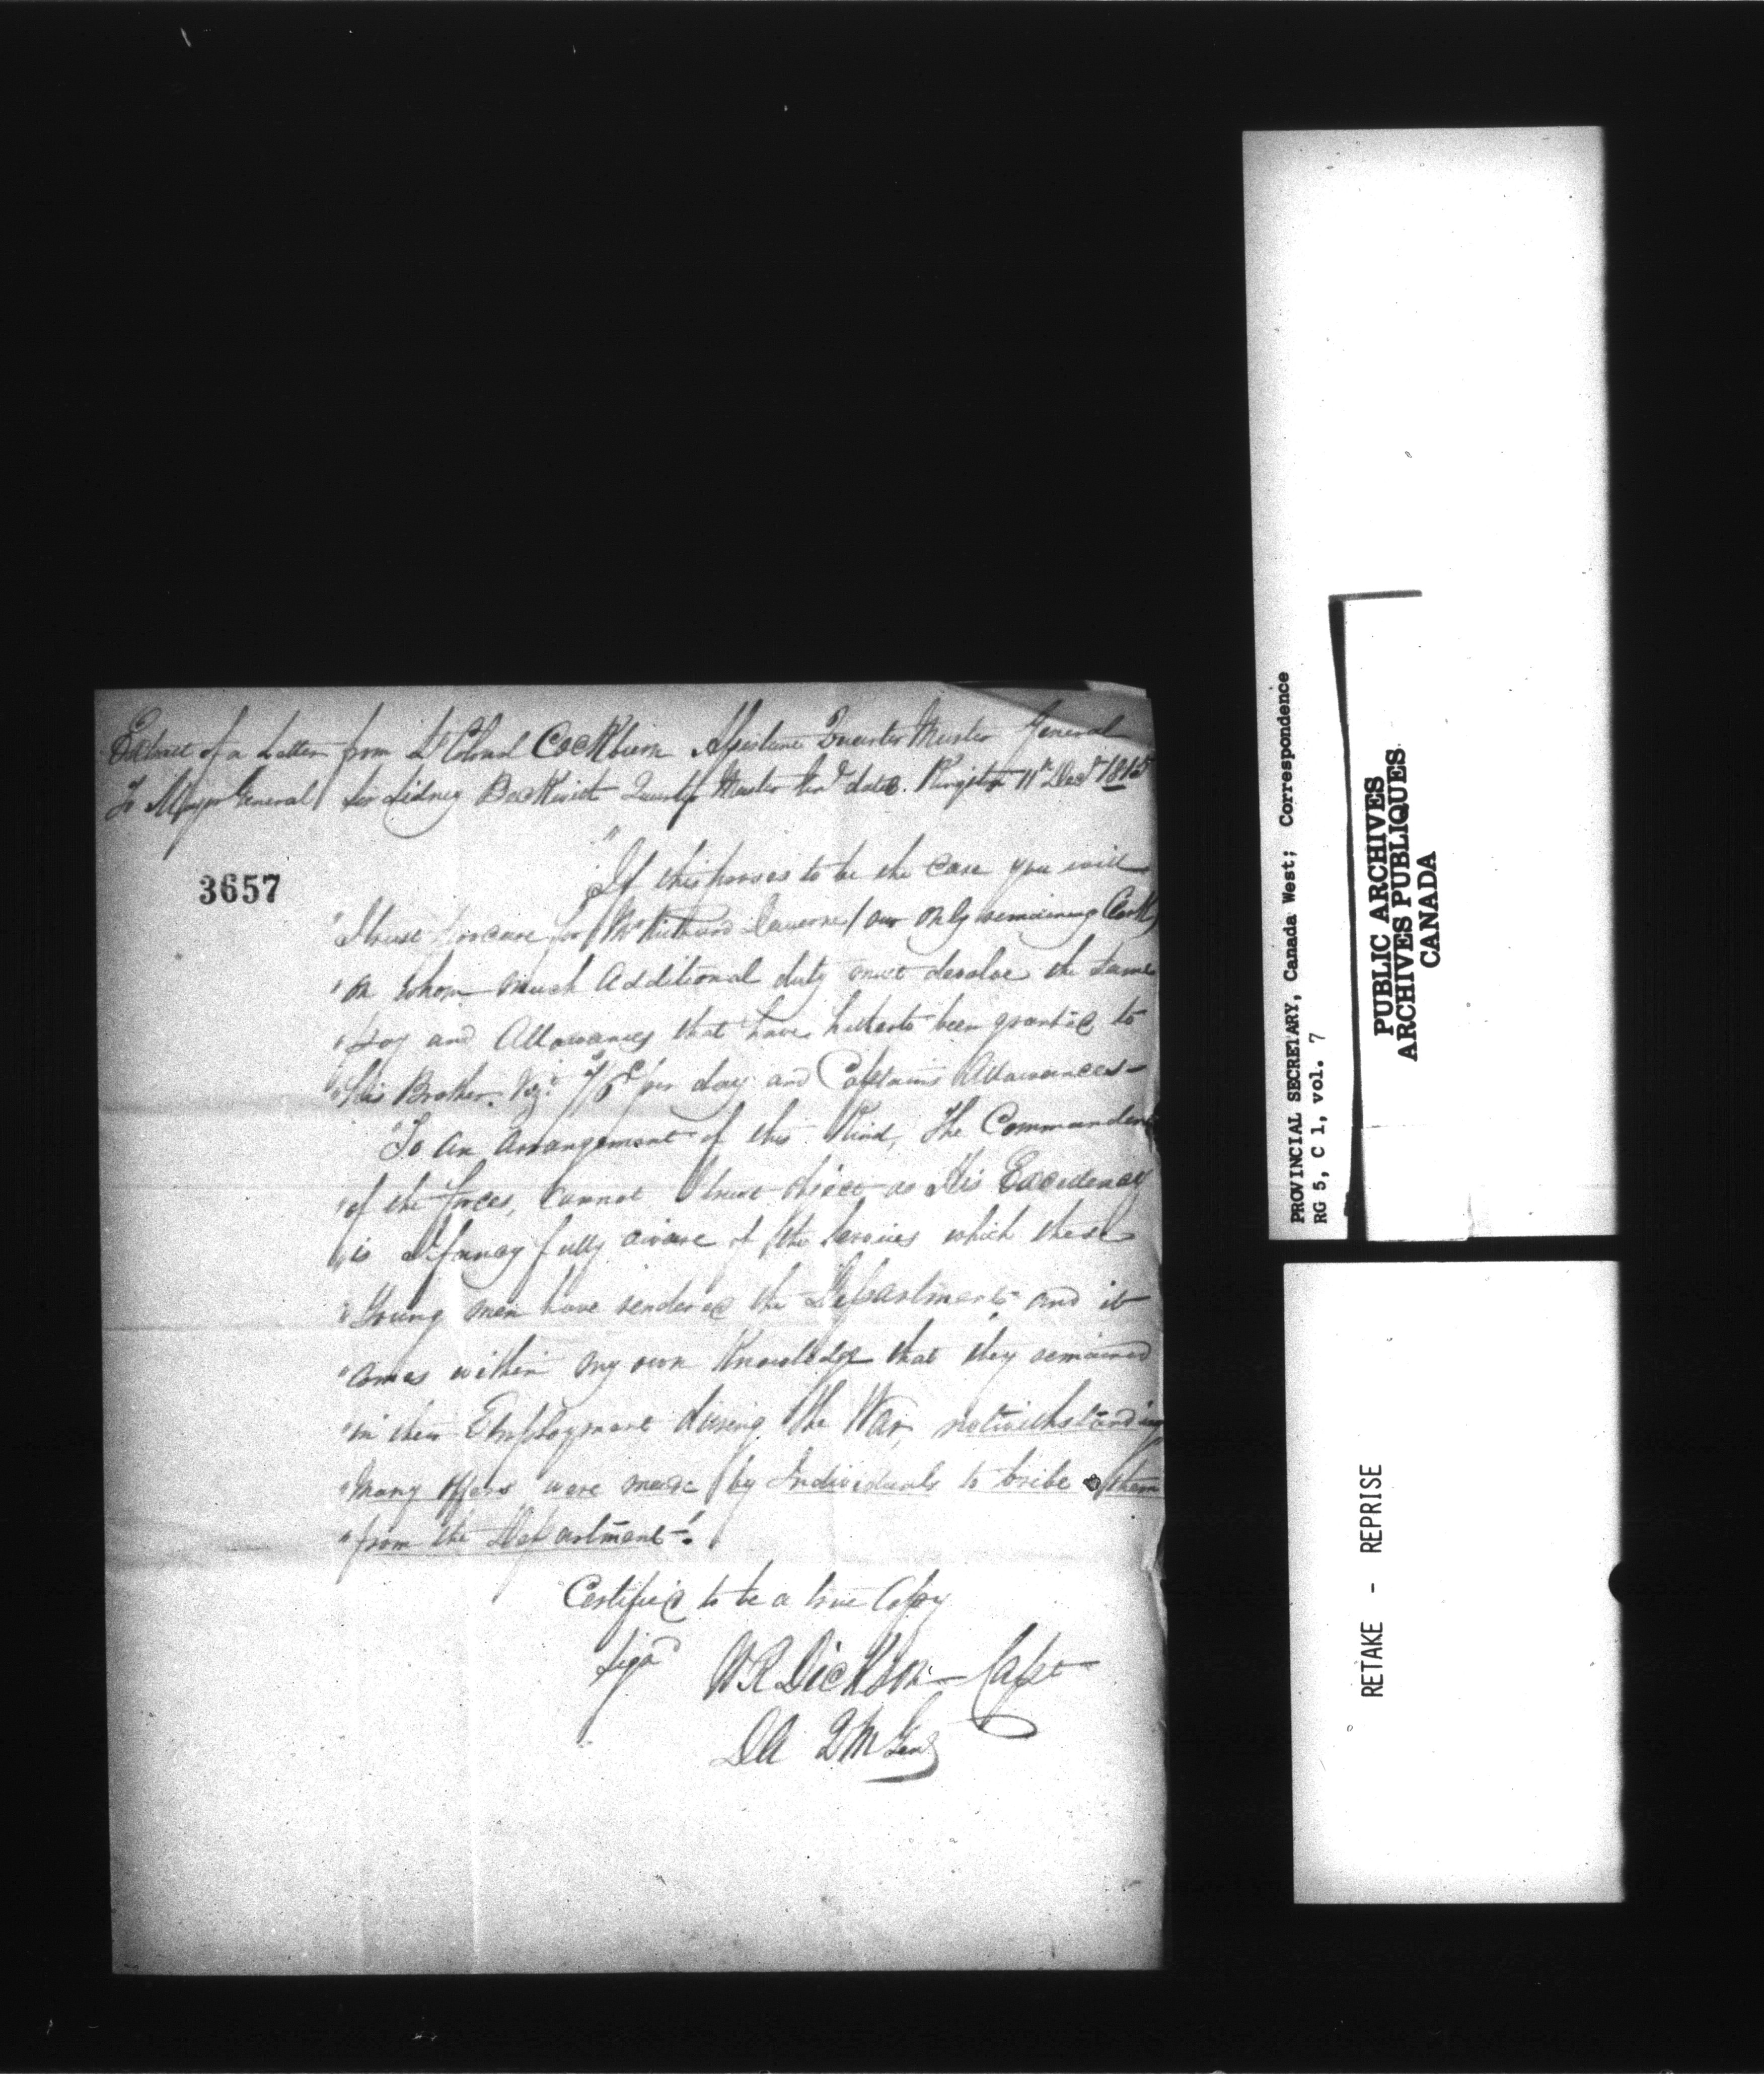 Extract of a Letter from Lt Colonel Cockburn Assistant Quarter Master General
To Major General Sir Sidney Beckwith Quarter Master Genl dated Kingston 11th Decr 1815
3657
"If this proves to be the case you will
"I trust procure for Mr Richard / our only remaining Clerk /
"on whom much additional duty must devolve the same
"pay and Allowances that have hitherto been granted to
"his Brother. Viz: 7/6d per day and Captains Allowances -
"To an arrangement of this Kind, The Commander
"of the forces, cannot I trust object as His Excellency
"is I fancy fully aware of the services which these
"Young men have rendered the Department and it
"comes within my own Knowledge that they remained
"in their Employment during the War, notwithstanding
"Many offers were made by Individuals to bribe them
"from the Department -".
Certified to be a true Copy
Signd W R Dickson Capt
DA QM Genl
PROVINCIAL SECRETARY, Canada West; Correspondence
RG 5, C 1, vol. 7
PUBLIC ARCHIVES
ARCHIVES PUBLIQUES
CANADA
RETAKE - REPRISE